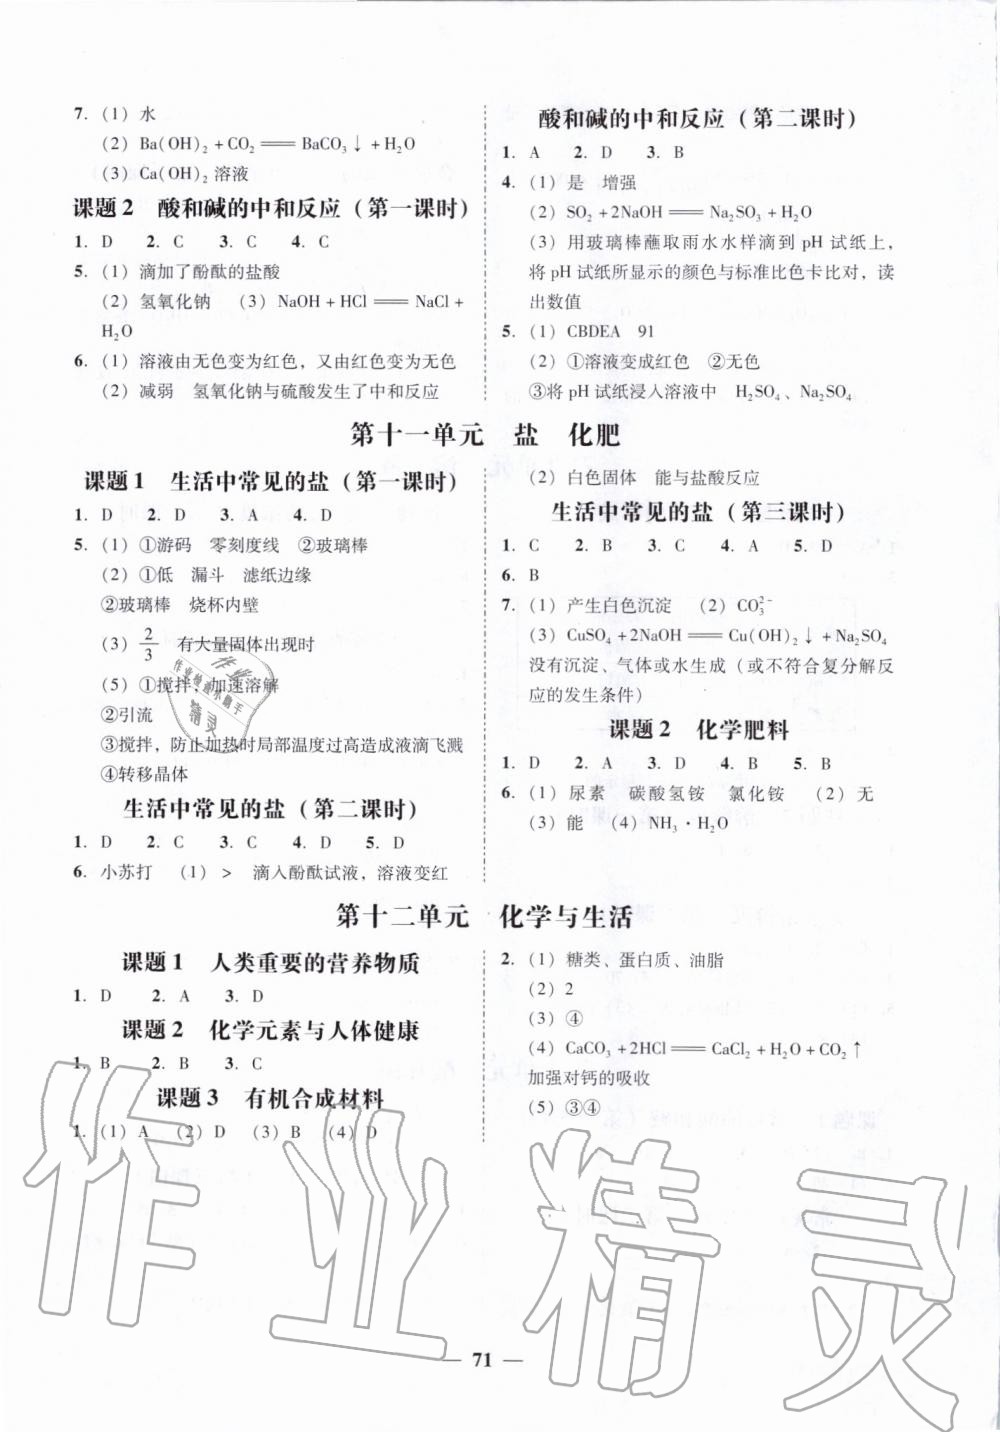 7. (1) 水
(2) Ba(OH)₂+CO₂══BaCO₃↓+H₂O
(3) Ca(OH)₂ 溶液
课题 2 酸和碱的中和反应（第一课时）
1. D 2. C 3. C 4. C
5. (1) 滴加了酚酞的盐酸
(2) 氢氧化钠 (3) NaOH+HCl══NaCl+
H₂O
6. (1) 溶液由无色变为红色，又由红色变为无色
(2) 减弱 氢氧化钠与硫酸发生了中和反应
酸和碱的中和反应（第二课时）
1. A 2. D 3. B
4. (1) 是 增强
(2) SO₂+2NaOH══Na₂SO₃+H₂O
(3) 用玻璃棒蘸取雨水水样滴到 pH 试纸上，
将 pH 试纸所显示的颜色与标准比色卡比对，读
出数值
5. (1) CBDEA 91
(2) ①溶液变成红色 ②无色
③将 pH 试纸浸入溶液中 H₂SO₄、Na₂SO₄
第十一单元 盐 化肥
课题 1 生活中常见的盐（第一课时）
1. D 2. D 3. A 4. D
5. (1) ①游码 零刻度线 ②玻璃棒
(2) ①低 漏斗 滤纸边缘
②玻璃棒 烧杯内壁
(3) 2/3 有大量固体出现时
(5) ①搅拌，加速溶解
②引流
③搅拌，防止加热时局部温度过高造成液滴飞溅
④转移晶体
生活中常见的盐（第二课时）
1. D 2. C 3. C 4. D 5. D
6. 小苏打 (1) > 滴入酚酞试液，溶液变红
(2) 白色固体 能与盐酸反应
生活中常见的盐（第三课时）
1. C 2. B 3. C 4. A 5. D
6. B
7. (1) 产生白色沉淀 (2) CO₃²⁻
(3) CuSO₄+2NaOH══Cu(OH)₂↓+Na₂SO₄
没有沉淀、气体或水生成（或不符合复分解反
应的发生条件）
课题 2 化学肥料
1. D 2. A 3. D 4. B 5. B
6. (1) 尿素 碳酸氢铵 氯化铵 (2) 无
(3) 能 (4) NH₃·H₂O
第十二单元 化学与生活
课题 1 人类重要的营养物质
1. D 2. A 3. D
课题 2 化学元素与人体健康
1. B 2. B 3. C
课题 3 有机合成材料
1. (1) A (2) D (3) B (4) D
2. (1) 糖类、蛋白质、油脂
(2) 2
(3) ④
(4) CaCO₃+2HCl══CaCl₂+H₂O+CO₂↑
加强对钙的吸收
(5) ③④
作业精灵
— 71 —